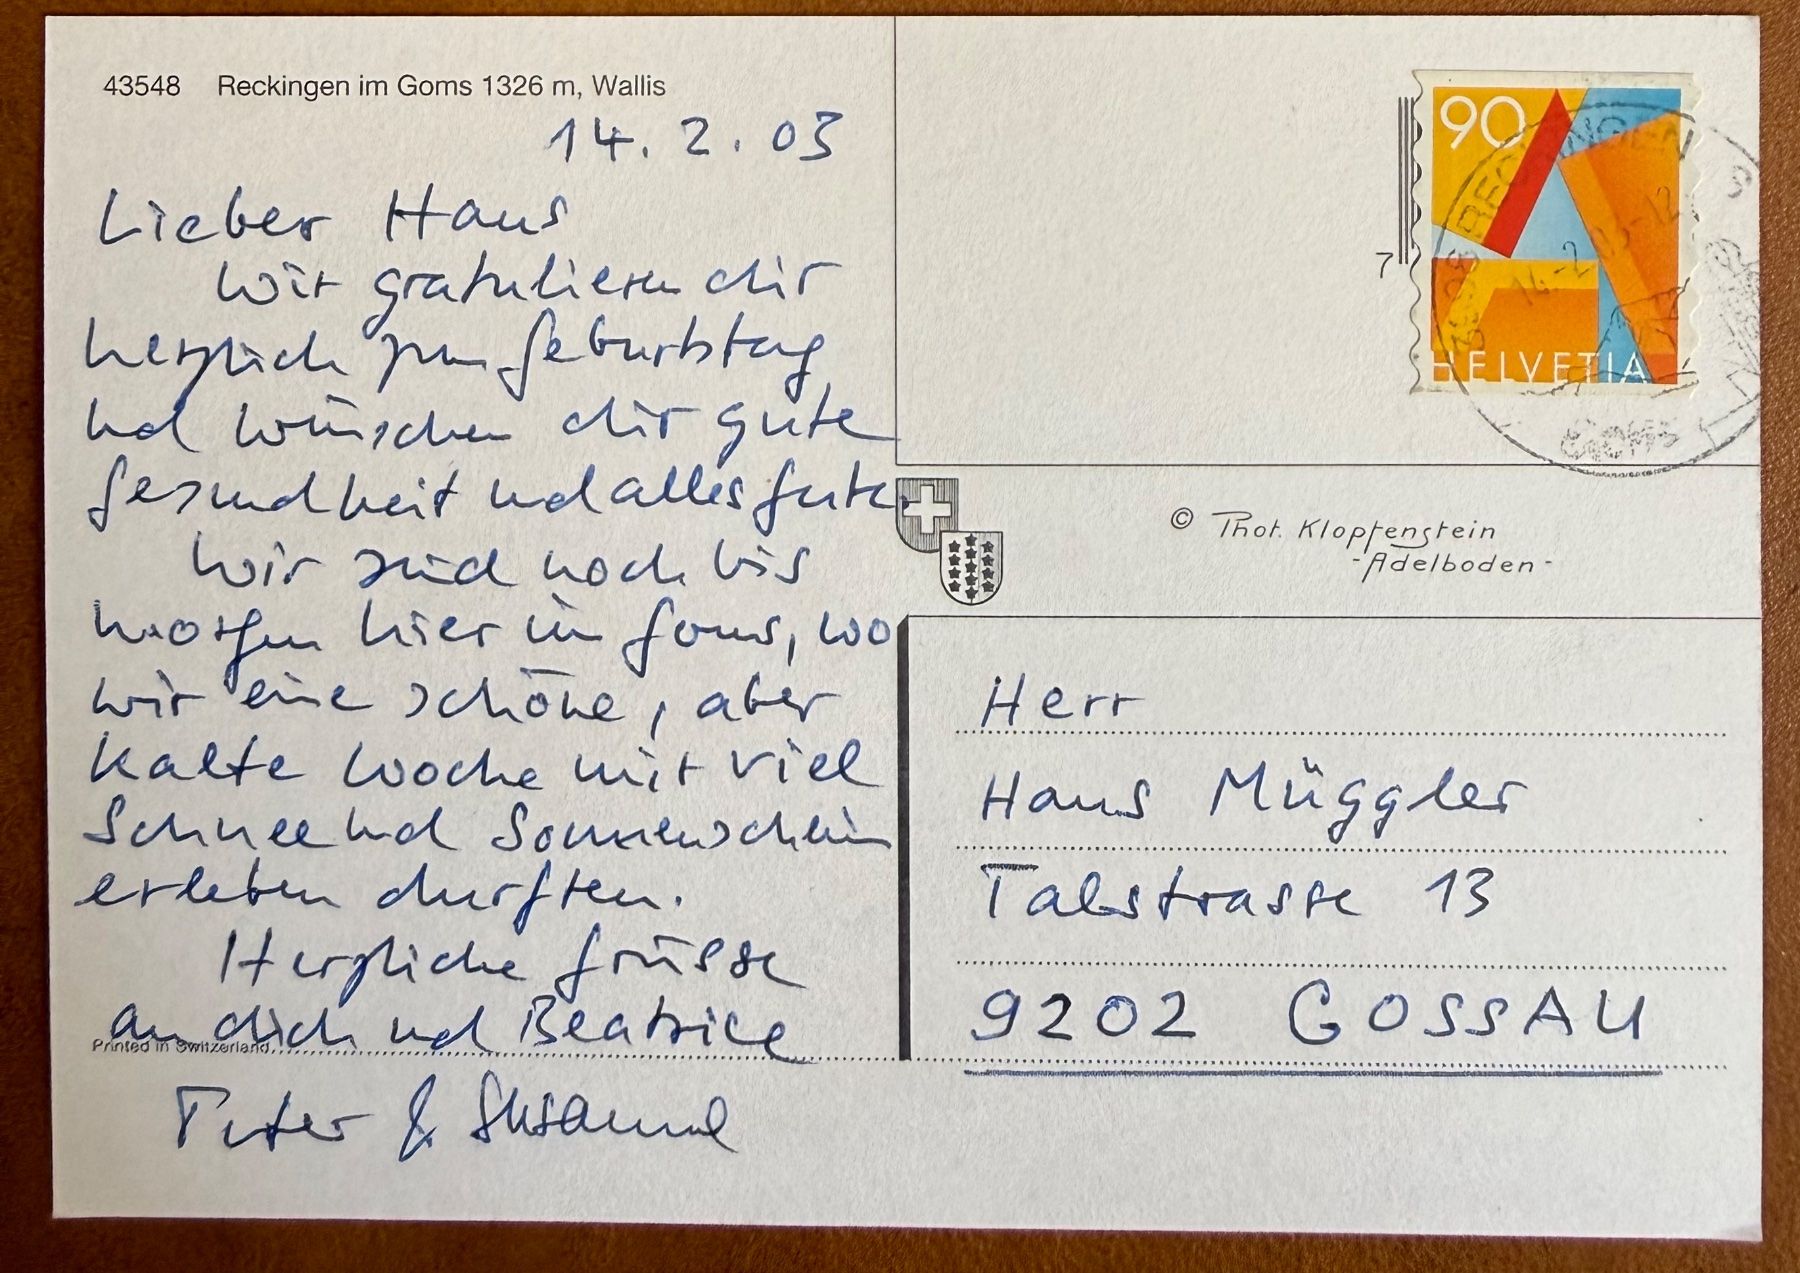 43548 Reckingen im Goms 1326 m, Wallis
14. 2. 03
Lieber Hans
Wir gratulieren dir
herzlich zum Geburtstag
und wünschen dir gute
Gesundheit und alles Gute.
Wir sind noch bis
morgen hier im Goms, wo
wir eine schöne, aber
kalte Woche mit viel
Schnee und Sonnenschein
erleben durften.
Herzliche Grüsse
an dich und Beatrice
Printed in Switzerland
Peter & Susanne
90
HELVETIA
7
RECKINGEN
14.-2.03-12
GOMS
© Phot. Klopfenstein
-Adelboden-
Herr
Hans Müggler
Talstrasse 13
9202 GOSSAU